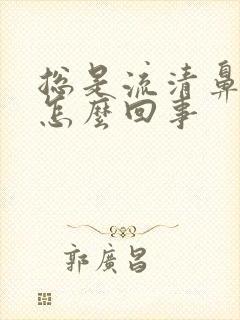 总是流清鼻
怎麼回事
郭廣昌